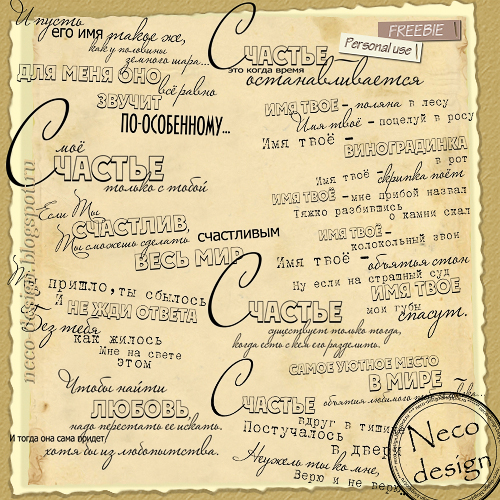 И пусть
его имя такое же,
как у половины
земного шара...
ДЛЯ МЕНЯ ОНО
всё равно
ЗВУЧИТ
ПО-ОСОБЕННОМУ...
моё
СЧАСТЬЕ
только с тобой
Если Ты
СЧАСТЛИВ,
Ты сможешь сделать счастливым
ВЕСЬ МИР
пришло, ты сбылось
И НЕ ЖДИ ОТВЕТА
Без тебя
как жилось
Мне на свете
этом
Чтобы найти
ЛЮБОВЬ,
надо перестать ее искать.
И тогда она сама придет
хотя бы из любопытства.
FREEBIE
Personal use
СЧАСТЬЕ –
это когда время
останавливается
ИМЯ ТВОЕ – поляна в лесу
Имя твоё – поцелуй в росу
Имя твоё –
ВИНОГРАДИНКА
в рот
Имя твоё –
скрипка поёт
ИМЯ ТВОЁ – мне прибой назвал
Тяжко разбившись
о камни скал
ИМЯ ТВОЁ –
колокольный звон
Имя твоё – объятья стон
Ну если на страшный суд
ИМЯ ТВОЕ
мои губы спасут.
СЧАСТЬЕ
существует только тогда,
когда есть с кем его разделить.
САМОЕ УЮТНОЕ МЕСТО
В МИРЕ –
объятия любимого
СЧАСТЬЕ
вдруг в тишине
Постучалось
в двери
Неужель ты ко мне,
Верю и не верю
Neco
design
neco-design.blogspot.ru